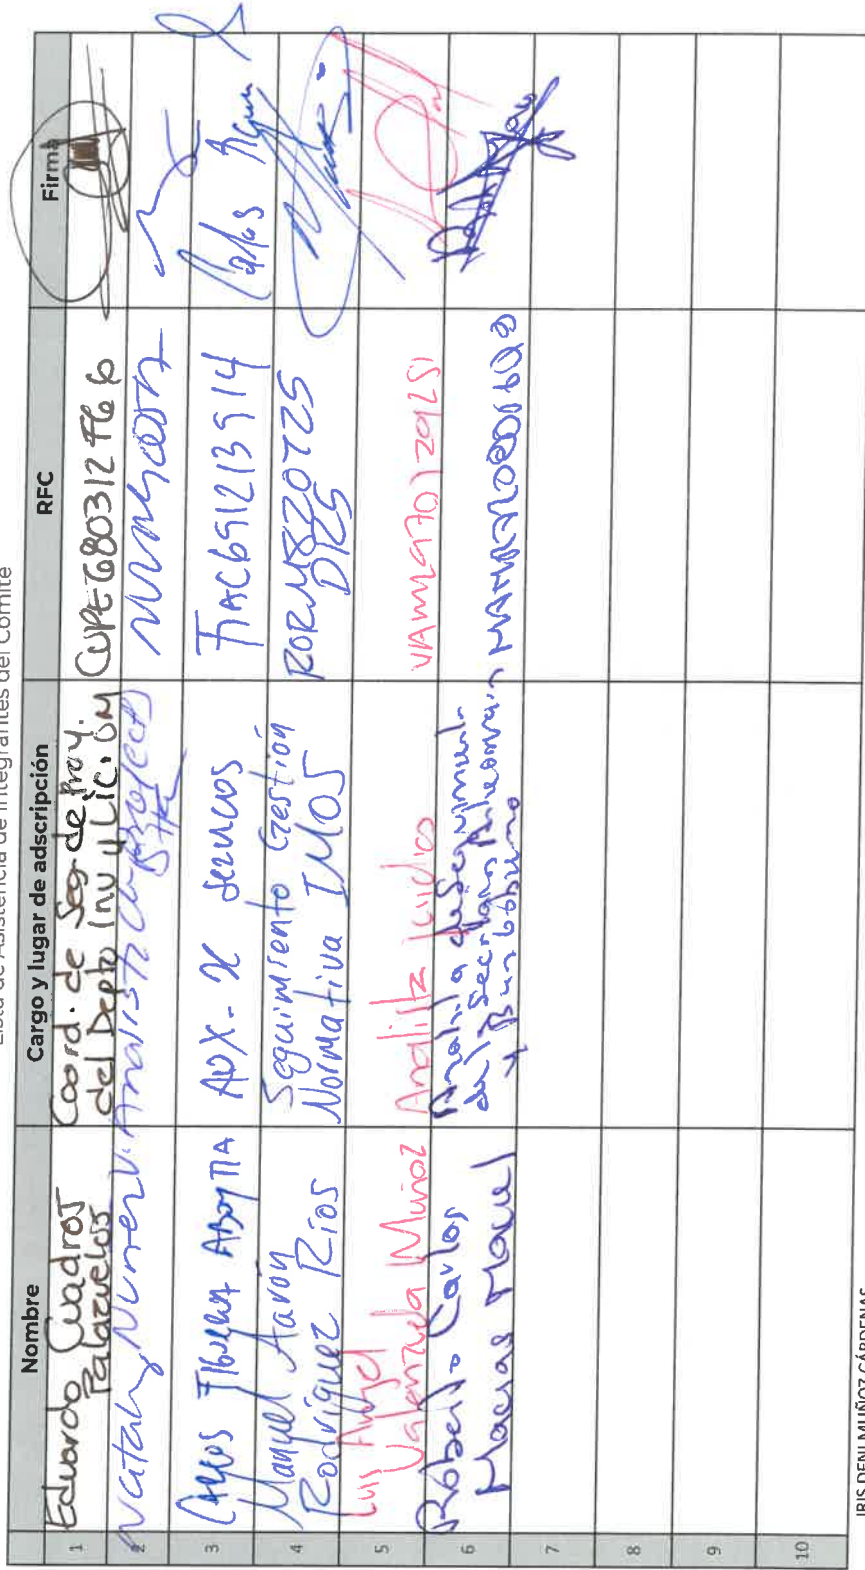 Lista de Asistencia de Integrantes del Comité
Nombre
Cargo y lugar de adscripción
RFC
Firma
1
Eduardo Cuadros
Palazuelos
Coord. de Seg. de Proy.
del Depto Inv y Lic. OM
CUPE680312F66
2
Nataly Nuñez V.
Analista
3
Carlos Figueroa Aboytia
AUX-
FIAC691213914
Carlos
4
Manuel Aarón
Rodríguez Ríos
Seguimiento Gestión
Normativa IMOS
RORM820725
D25
5
Luis Angel
Valenzuela Muñoz
Analista Juridico
VAML970129251
6
Roberto Carlos
Macias Maciel
Analista de Seguimiento
de la Secretaria
y Buen Gobierno
7
8
9
10
IRIS DENI MUÑOZ CÁRDENAS